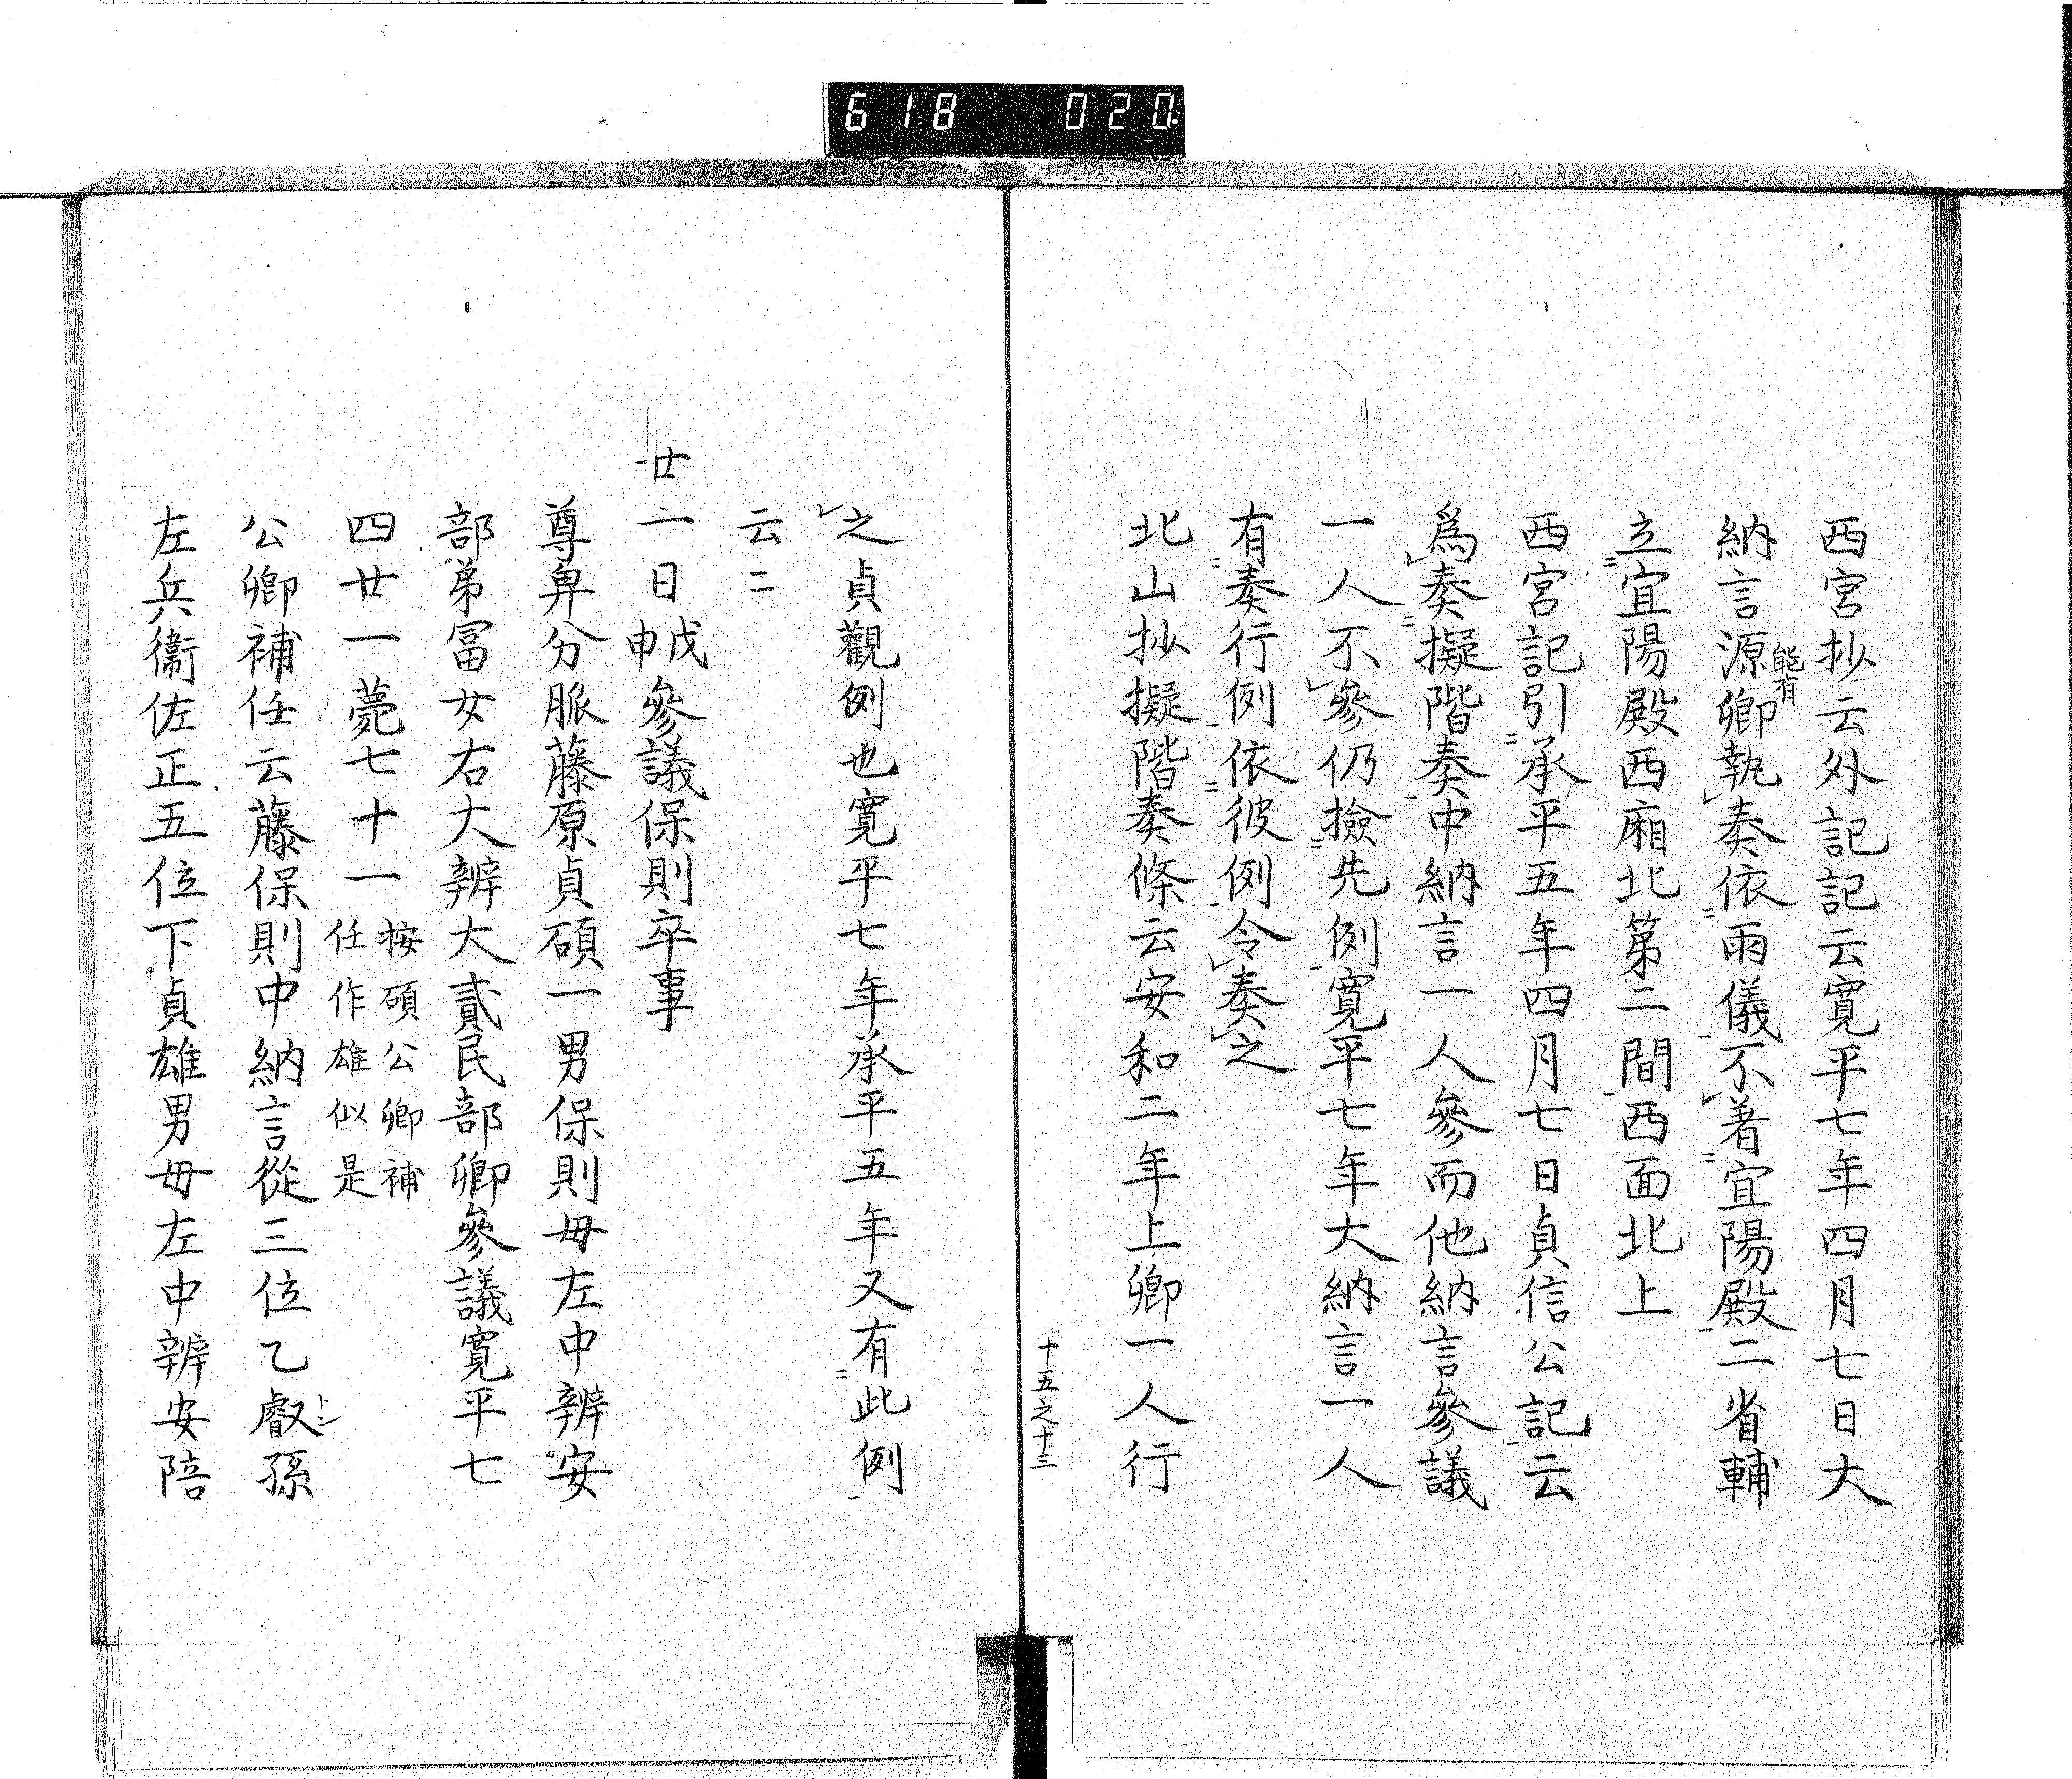 618 020
西宮抄云外記記云寛平七年四月七日大
納言源卿能有執奏依雨儀不著宜陽殿二省輔
立宜陽殿西廂北第二間西面北上
西宮記引承平五年四月七日貞信公記云
為奏擬階奏中納言一人參而他納言參議
一人不參仍撿先例寛平七年大納言一人
有奏行例依彼例令奏之
北山抄擬階奏條云安和二年上卿一人行
十五之十三
之貞觀例也寛平七年承平五年又有此例
云〻
廿一日戊申參議保則卒事
尊卑分脈藤原貞碩一男保則母左中辨安
部弟冨女右大辨大貳民部卿參議寛平七
四廿一薨七十一按碩公卿補
任作雄似是
公卿補任云藤保則中納言從三位乙叡孫
左兵衞佐正五位下貞雄男母左中辨安陪